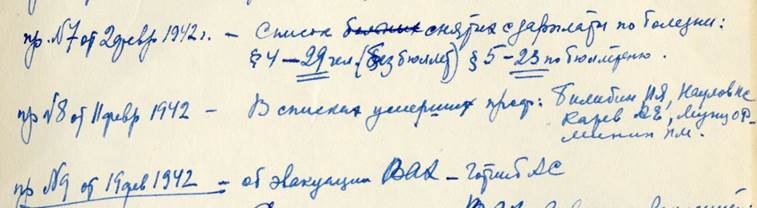 пр. №7 от 2 февр 1942 г. – Список ~~больных~~ снятых с зарплаты по болезни:
§ 4 – 29 чел. (без бюллет) § 5 – 23 по бюллетеню.
пр №8 от 11 февр 1942 – В списках умерших проф: Билибин ИЯ, Наумов ПС
Карев АЕ, Мунц ОР
Минин ПМ.
пр №9 от 19 фев 1942 – об эвакуации ВАХ – Готлиб АС